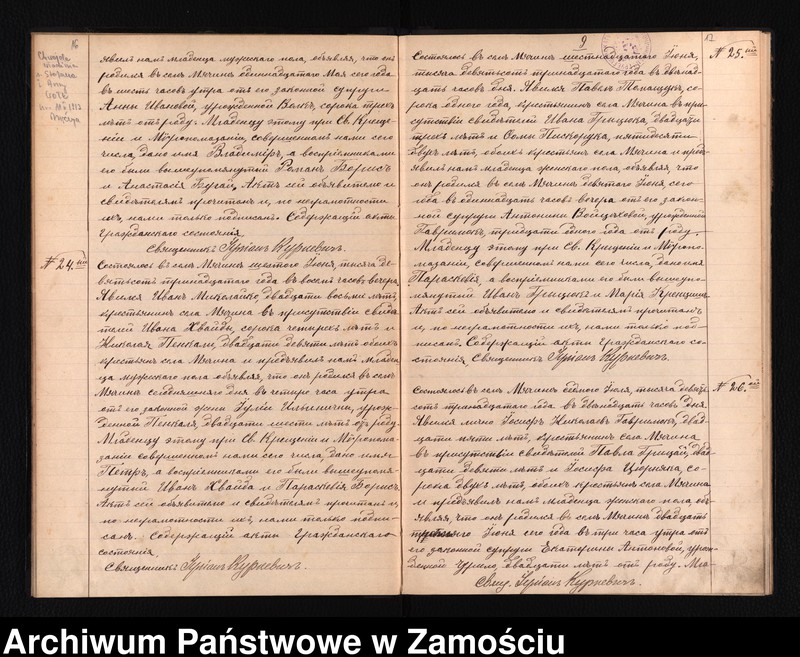 16
явилъ намъ младенца мужескаго пола, объявляя, что онъ
родился въ селѣ Мячинѣ одиннадцатаго Мая сего года
въ шесть часовъ утра отъ его законной супруги
Анны Ивановой, урожденной Волкъ, сорока трехъ
лѣтъ отъ роду. Младенцу этому при Св. Креще-
ніи и Мѵропомазаніи, совершенномъ нами сего
числа, дано имя Владиміръ, а воспріемниками
его были вышеупомянутый Романъ Борисъ
и Анастасія Бугай. Актъ сей объявителю и
свидѣтелямъ прочитанъ и, по неграмотности
ихъ, нами только подписанъ. Содержащій акты
Гражданскаго состоянія
Священникъ: Іуліанъ Куркевичъ.
№ 24.
Состоялось въ селѣ Мячинѣ шестого Іюня, тысяча де-
вятьсотъ тринадцатаго года въ восемь часовъ вечера.
Явился Иванъ Миколайко, двадцати восьми лѣтъ,
крестьянинъ села Мячина въ присутствіи свидѣ-
телей Ивана Хвайды, сорока четырехъ лѣтъ и
Николая Пенкали, двадцати девяти лѣтъ обоихъ
крестьянъ села Мячина и предъявилъ намъ младен-
ца мужескаго пола объявляя, что онъ родился въ селѣ
Мячинѣ сегодняшняго дня въ четыре часа утра
отъ его законной жены Іуліи Ильиничны, урож-
денной Пенкаля, двадцати шести лѣтъ отъ роду.
Младенцу этому при Св. Крещеніи и Мѵропома-
заніи совершенномъ нами сего числа, дано имя
Петръ, а воспріемниками его были вышеупомя-
нутый Иванъ Хвайда и Параскевія Борисъ.
Актъ сей объявителю и свидѣтелямъ прочитанъ и,
по неграмотности ихъ, нами только подпи-
санъ. Содержащій акты Гражданскаго
состоянія.
Священникъ: Іуліанъ Куркевичъ.
9
17
№ 25.
Состоялось въ селѣ Мячинѣ шестнадцатаго Іюня,
тысяча девятьсотъ тринадцатаго года въ двѣнад-
цать часовъ дня. Явился Павелъ
рока одного года, крестьянинъ села Мячина въ при-
сутствіи свидѣтелей Ивана Грицюка, двадцати
трехъ лѣтъ и Семы Пискорука, пятидесяти
двухъ лѣтъ, обоихъ крестьянъ села Мячина и предъ-
явилъ намъ младенца женскаго пола, объявляя, что
онъ родился въ селѣ Мячинѣ девятаго Іюня, сего
года въ одиннадцать часовъ вечера отъ его закон-
ной супруги Антонины Войцѣховой, урожденной
Гаврилюкъ, тридцати одного года отъ роду.
Младенцу этому при Св. Крещеніи и Мѵропо-
мазаніи, совершенномъ нами сего числа, дано имя
Параскевія, а воспріемниками его были вышеупо-
мянутый Иванъ Грицюкъ и Марія
Актъ сей объявителю и свидѣтелямъ прочитанъ
и, по неграмотности ихъ, нами только под-
писанъ. Содержащій акты Гражданскаго со-
стоянія. Священникъ Іуліанъ Куркевичъ.
№ 26.
Состоялось въ селѣ Мячинѣ Іюля, тысяча девять-
сотъ тринадцатаго года въ двѣнадцать часовъ дня.
Явился лично Іосифъ Николаевъ Гаврилюкъ, двад-
цати пяти лѣтъ, крестьянинъ села Мячина
въ присутствіи свидѣтелей Павла Грицай, двад-
цати девяти лѣтъ и Іосифа сo-
рока двухъ лѣтъ, обоихъ крестьянъ села Мячина
и предъявилъ намъ младенца женскаго пола, объ-
являя, что онъ родился въ селѣ Мячинѣ двадцать
Іюня сего года въ три часа утра отъ
его законной супруги Екатерины Антоновой, урож-
денной двадцати лѣтъ отъ роду. Мла-
Свящ. Іуліанъ Куркевичъ.
Archiwum Państwowe w Zamościu